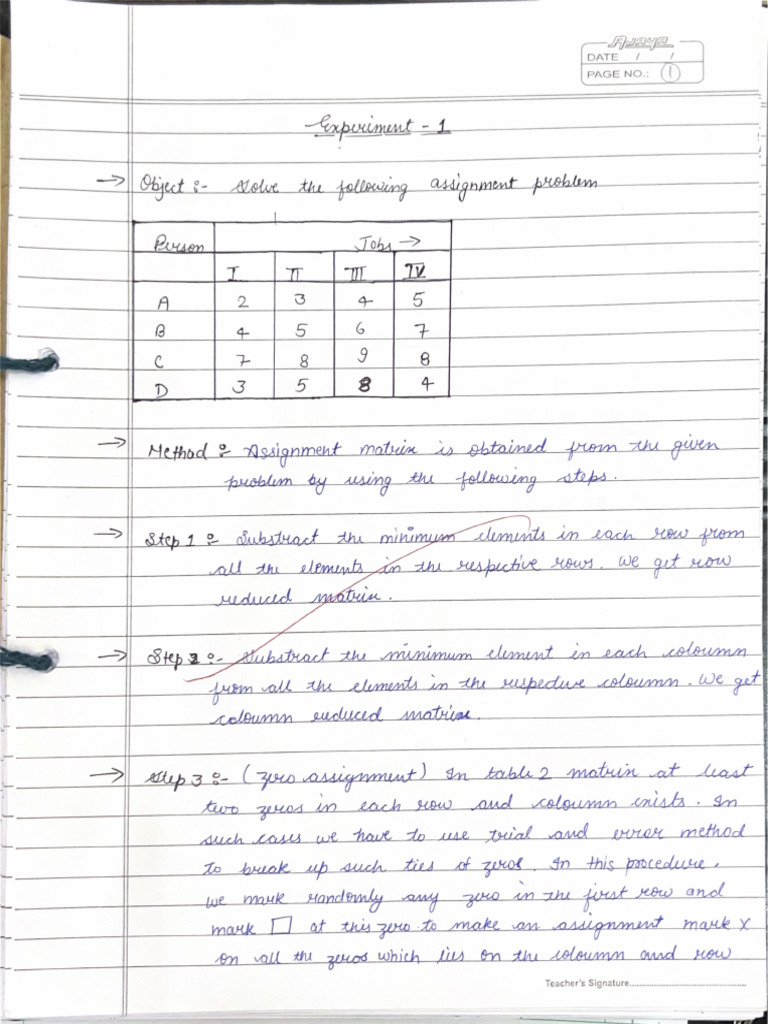 Ajaya
DATE / /
PAGE NO.: 1
Experiment - 1
→ Object :- Solve the following assignment problem
Person Jobs →
I II III IV
A 2 3 4 5
B 4 5 6 7
C 7 8 9 8
D 3 5 8 4
→ Method :- Assignment matrix is obtained from the given
problem by using the following steps.
→ Step 1 :- Substract the minimum elements in each row from
all the elements in the respective rows. We get row
reduced matrix.
→ Step 2 :- Substract the minimum element in each coloumn
from all the elements in the respective coloumn. We get
coloumn reduced matrix.
→ Step 3 :- (Zero assignment) In table 2 matrix at least
two zeros in each row and coloumn exists. In
such cases we have to use trial and error method
to break up such ties of zeros. In this procedure.
we mark randomly any zero in the first row and
mark □ at this zero to make an assignment mark X
on all the zeros which lies on the coloumn and row
Teacher's Signature